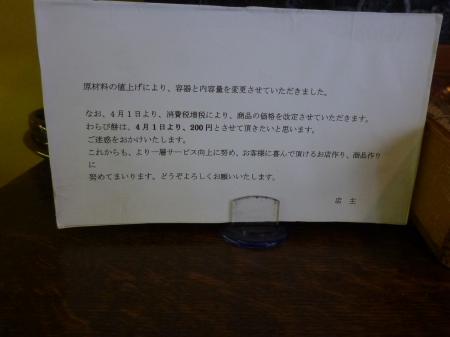 原材料の値上げにより、容器と内容量を変更させていただきました。
なお、４月１日より、消費税増税により、商品の価格を改定させていただきます。
わらび餅は、４月１日より、200円とさせて頂きたいと思います。
ご迷惑をおかけいたします。
これからも、より一層サービス向上に努め、お客様に喜んで頂けるお店作り、商品作り
に
努めてまいります。どうぞよろしくお願いいたします。
店　主